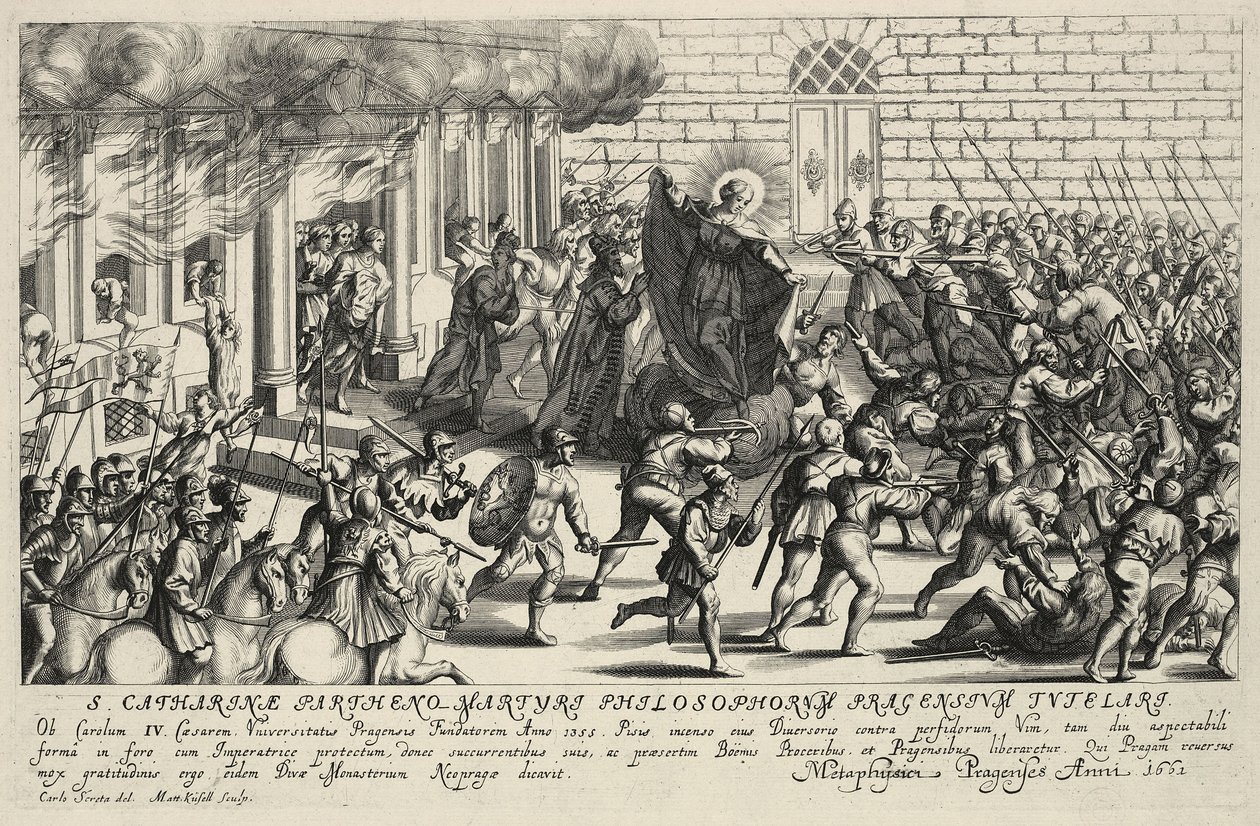 S. CATHARINÆ PARTHENO-MARTYRI PHILOSOPHORVM PRAGENSIVM TVTELARI.
Ob Carolum IV. Cæsarem, Vniversitatis Pragensis Fundatorem Anno 1355. Pisis incenso eius Diversorio contra perfidorum Vim, tam diu aspectabili
formâ in foro cum Imperatrice protectum, donec succurrentibus suis, ac præsertim Boëmis Proceribus, et Pragensibus liberaretur. Qui Pragam reversus
mox gratitudinis ergo eidem Divæ Monasterium Neopragæ dicavit. Metaphysici Pragenses Anni 1661
Carlo Screta del. Matt. Küsell Sculp.